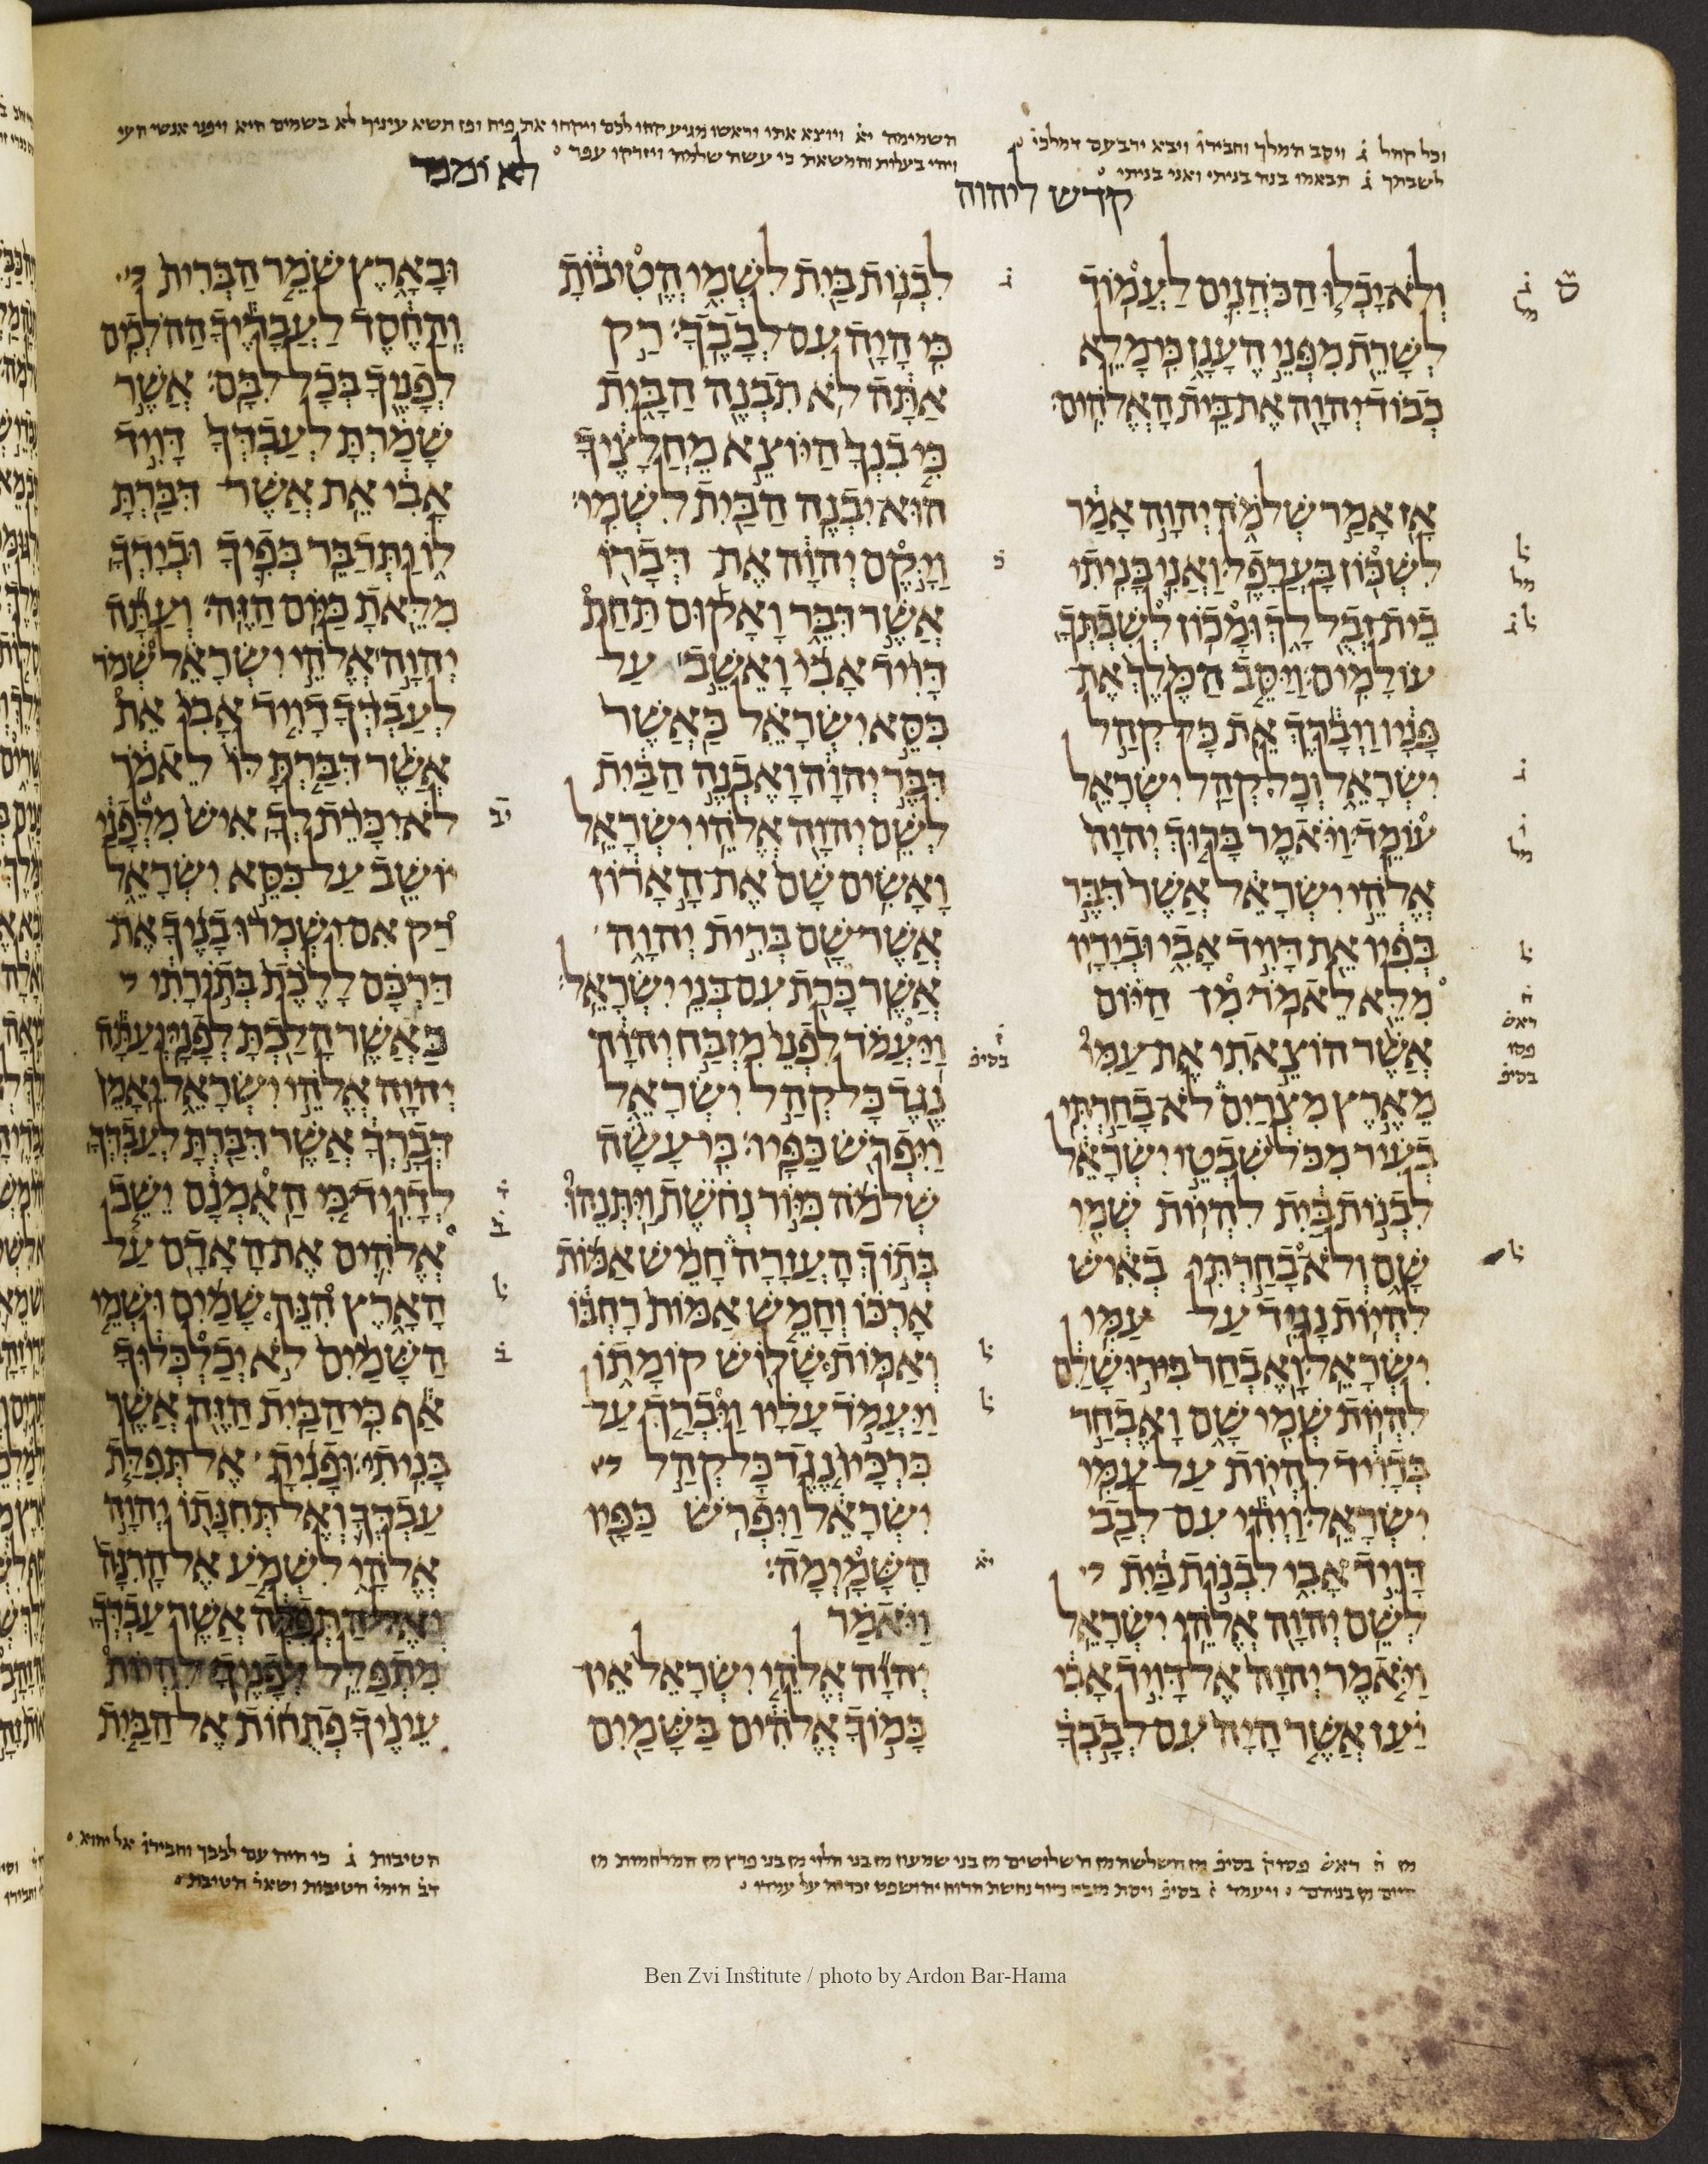 וכל קהל ג ויסב המלך וחבירו ויבא ירבעם דמלכי
לשבתך ג תבאמו בנה בניתי ואני בניתי
השמימה יא ויוצא אתו וראשו מגיע קחו לכם ויקחו את פיח ופז תשא עיניך לא בשמים היא ויפנו אנשי העי
ויהי בעלות והמשאת כי עשה שלמה ויזרקו עפר
קדש ליהוה
לא ימכר
ולא יכלו הכהנים לעמוד
לשרת מפני הענן כי מלא
כבוד יהוה את בית האלהים
אז אמר שלמה יהוה אמר
לשכון בערפל ואני בניתי
בית זבל לך ומכון לשבתך
עולמים ויסב המלך את
פניו ויברך את כל קהל
ישראל וכל קהל ישראל
עומד ויאמר ברוך יהוה
אלהי ישראל אשר דבר
בפיו את דויד אבי ובידיו
מלא לאמר מן היום
אשר הוצאתי את עמי
מארץ מצרים לא בחרתי
בעיר מכל שבטי ישראל
לבנות בית להיות שמי
שם ולא בחרתי באיש
להיות נגיד על עמי
ישראל ואבחר בירושלם
להיות שמי שם ואבחר
בדויד להיות על עמי
ישראל ויהי עם לבב
דויד אבי לבנות בית
לשם יהוה אלהי ישראל
ויאמר יהוה אל דויד אבי
יען אשר היה עם לבבך
לבנות בית לשמי הטיבות
כי היה עם לבבך רק
אתה לא תבנה הבית
כי בנך היוצא מחלציך
הוא יבנה הבית לשמי
ויקם יהוה את דברו
אשר דבר ואקום תחת
דויד אבי ואשב על
כסא ישראל כאשר
דבר יהוה ואבנה הבית
לשם יהוה אלהי ישראל
ואשים שם את הארון
אשר שם ברית יהוה
אשר כרת עם בני ישראל
ויעמד לפני מזבח יהוה
נגד כל קהל ישראל
ויפרש כפיו כי עשה
שלמה כיור נחשת ויתנהו
בתוך העזרה חמש אמות
ארכו וחמש אמות רחבו
ואמות שלוש קומתו
ויעמד עליו ויברך על
ברכיו נגד כל קהל
ישראל ויפרש כפיו
השמימה
ויאמר
יהוה אלהי ישראל אין
כמוך אלהים בשמים
ובארץ שמר הברית
והחסד לעבדיך ההלכים
לפניך בכל לבם אשר
שמרת לעבדך דויד
אבי את אשר דברת
לו ותדבר בפיך ובידך
מלאת כיום הזה ועתה
יהוה אלהי ישראל שמר
לעבדך דויד אבי את
אשר דברת לו לאמר
לא יכרת לך איש מלפני
יושב על כסא ישראל
רק אם ישמרו בניך את
דרכם ללכת בתורתי
כאשר הלכת לפני ועתה
יהוה אלהי ישראל יאמן
דברך אשר דברת לעבדך
לדויד כי האמנם ישב
אלהים את האדם על
הארץ הנה שמים ושמי
השמים לא יכלכלוך
אף כי הבית הזה אשר
בניתי ופנית אל תפלת
עבדך ואל תחנתו יהוה
אלהי לשמע אל הרנה
ואל התפלה אשר עבדך
מתפלל לפניך להיות
עיניך פתחות אל הבית
מן ה ראש פסוק בסיפ מן השלשה מן השלושים מן בני שמעון מן בני הלוי מן בני פרץ מן המלחמות מן
היום מן בניהם ויעמד
הטיבות ג כי היה עם לבבך וחבירו אל יהוא
דב הימי הטיבות ושאר הטיבת
Ben Zvi Institute / photo by Ardon Bar-Hama